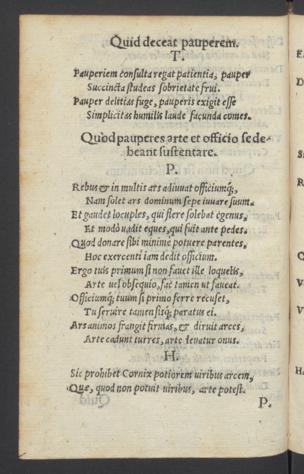 Quid deceat pauperem.
T.
Pauperiem consulta regat patientia, pauper
Succincta studeas sobrietate frui.
Pauper delitias fuge, pauperis exigit esse
Simplicitas humilis laude facunda comes.
Quòd pauperes arte et officio se de-
beant sustentare.
P.
Rebus & in multis ars adiuuat officiumq́;,
Nam solet ars dominum sepe iuuare suum.
Et gaudet locuples, qui flere solebat egenus,
Et modò uadit eques, qui fuit ante pedes.
Quod donare sibi minime potuere parentes,
Hoc exercenti iam dedit officium.
Ergo tuis primum si non fauet ille loquelis,
Arte uel obsequio, fac tamen ut faueat.
Officiumq́; tuum si primo ferre recuset,
Tu seruire tamen sisq́; paratus ei.
Ars animos frangit firmas, & diruit arces,
Arte cadunt turres, arte leuatur onus.
H.
Sic prohibet Cornix potiorem uiribus arcem,
Quæ, quod non potuit uiribus, arte potest.
P.
E
R
Q
V
H